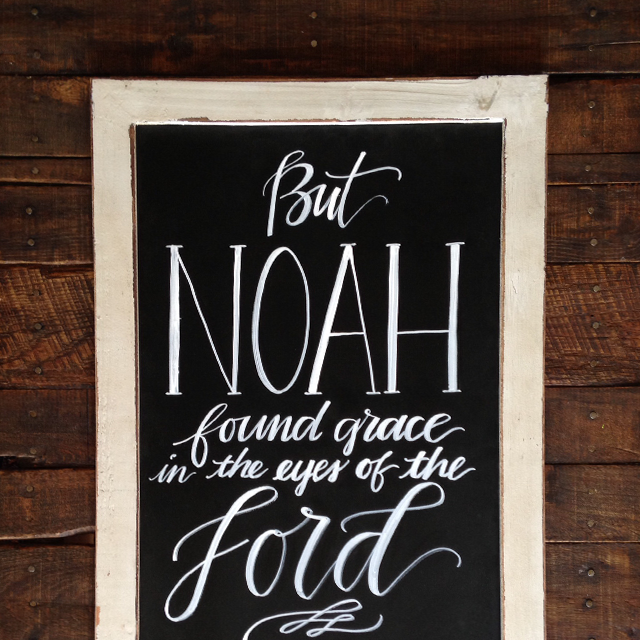 But
NOAH
found grace
in the eyes of the
Lord